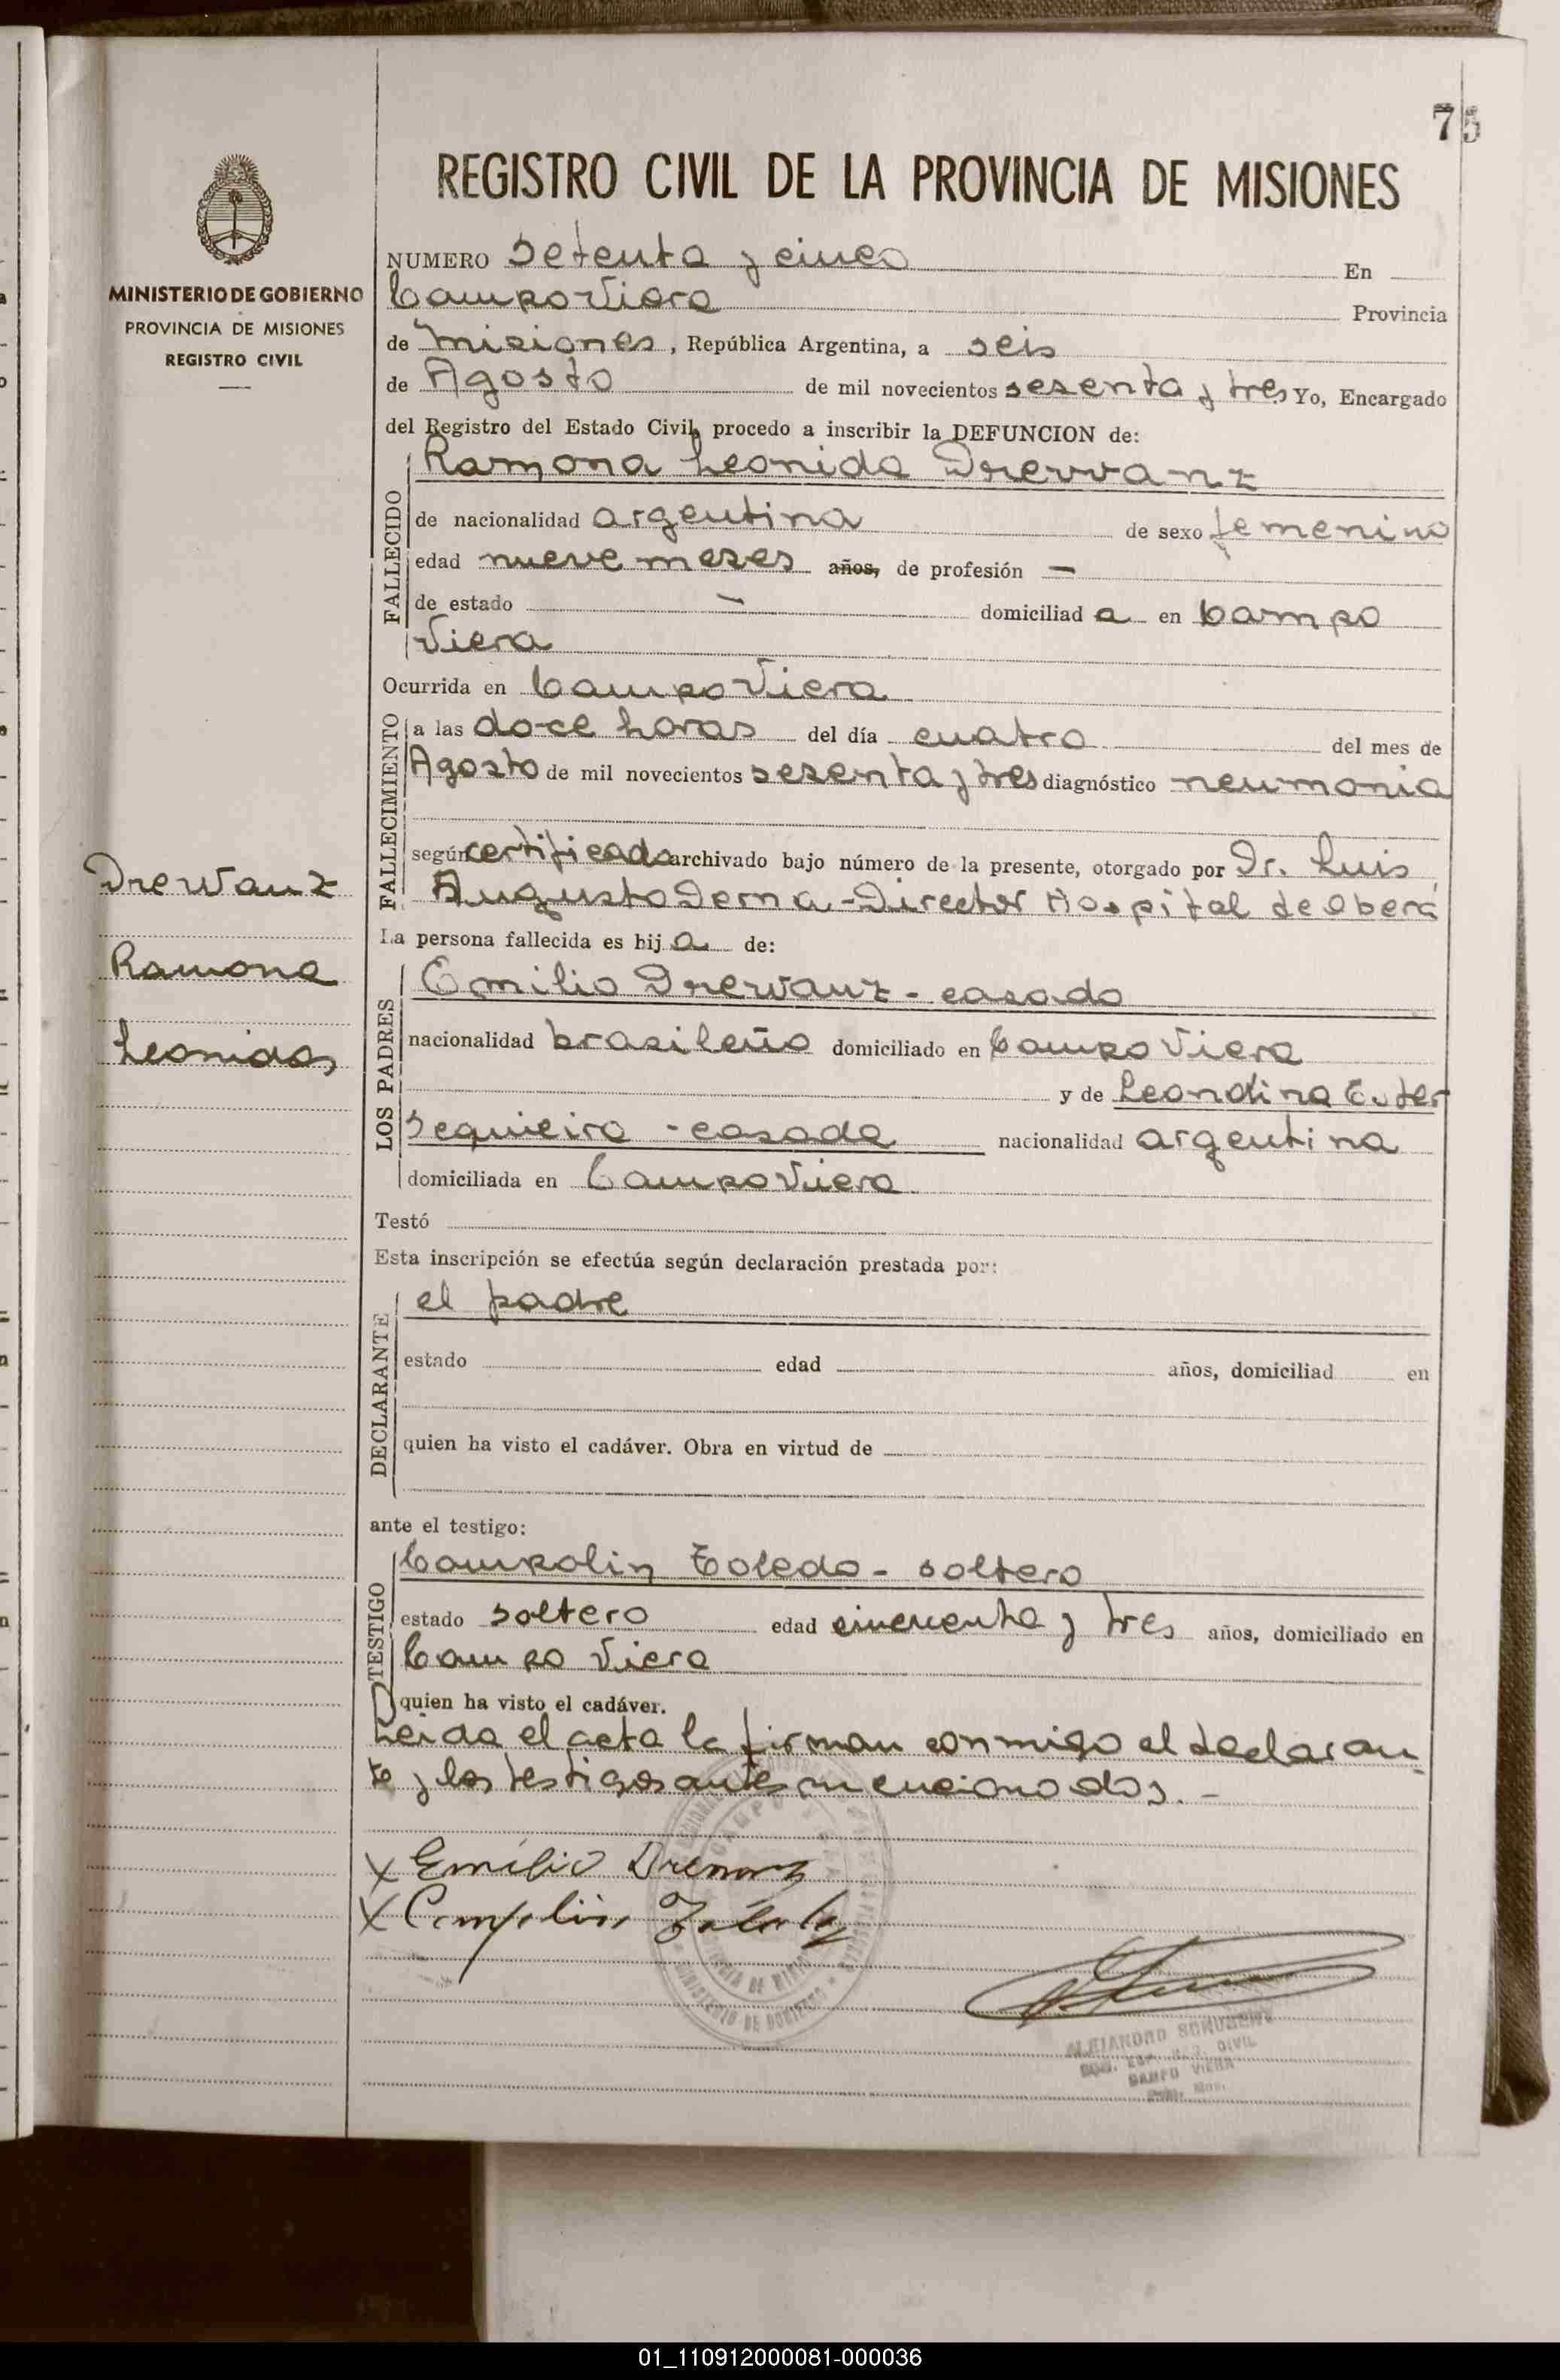 75
REGISTRO CIVIL DE LA PROVINCIA DE MISIONES
MINISTERIO DE GOBIERNO
PROVINCIA DE MISIONES
REGISTRO CIVIL
NUMERO Setenta y cinco En
Campo Viera Provincia
de Misiones, República Argentina, a seis
de Agosto de mil novecientos sesenta y tres Yo, Encargado
del Registro del Estado Civil, procedo a inscribir la DEFUNCION de:
FALLECIDO
Ramona Leonida Drewanz
de nacionalidad argentina de sexo femenino
edad nueve meses años, de profesión —
de estado — domiciliad a en Campo
Viera
Ocurrida en Campo Viera
FALLECIMIENTO
a las doce horas del día cuatro del mes de
Agosto de mil novecientos sesenta y tres diagnóstico neumonia
según certificado archivado bajo número de la presente, otorgado por Dr. Luis
Augusto Derna - Director Hospital de Oberá
Drewanz
Ramona
Leonidas
La persona fallecida es hij a de:
LOS PADRES
Emilio Drewanz - casado
nacionalidad brasileño domiciliado en Campo Viera
y de Leondina Ester
Sequieira - casada nacionalidad argentina
domiciliada en Campo Viera
Testó
Esta inscripción se efectúa según declaración prestada por:
DECLARANTE
el padre
estado edad años, domiciliad en
quien ha visto el cadáver. Obra en virtud de
ante el testigo:
TESTIGO
Campolin Toledo - soltero
estado soltero edad cincuenta y tres años, domiciliado en
Campo Viera
quien ha visto el cadáver.
Leida el acta la firman conmigo el declaran
te y los testigos antes mencionados. -
x Emilio Drewanz
x Campolin Toledo
MINISTERIO DE GOBIERNO
CAMPO VIERA
01_110912000081-000036